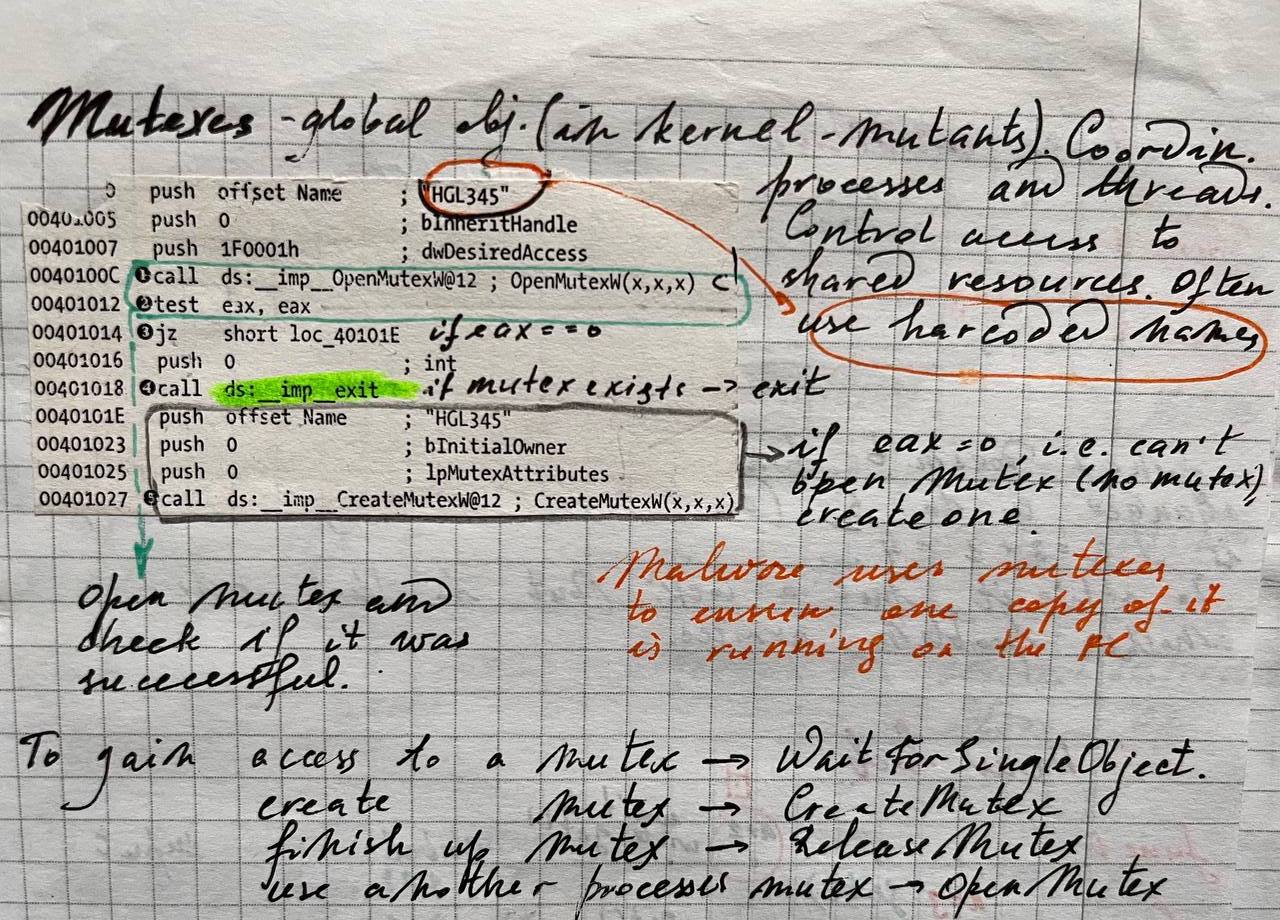 Mutexes - global obj. (in kernel - mutants). Coordin.
processes and threads.
Control access to
shared resources. Often
use harcoded names
push offset Name ; "HGL345"
00401005 push 0 ; bInheritHandle
00401007 push 1F0001h ; dwDesiredAccess
0040100C ❶call ds:__imp__OpenMutexW@12 ; OpenMutexW(x,x,x)
00401012 ❷test eax, eax
00401014 ❸jz short loc_40101E if eax == 0
00401016 push 0 ; int
00401018 ❹call ds:__imp__exit if mutex exists → exit
0040101E push offset Name ; "HGL345"
00401023 push 0 ; bInitialOwner
00401025 push 0 ; lpMutexAttributes
00401027 ❺call ds:__imp__CreateMutexW@12 ; CreateMutexW(x,x,x)
→ if eax = 0, i.e. can't
open Mutex (no mutex),
create one.
Open mutex and
check if it was
successful.
Malware uses mutexes
to ensure one copy of it
is running on the PC
To gain access to a mutex → WaitForSingleObject.
create mutex → CreateMutex
finish up mutex → ReleaseMutex
use another processes mutex → OpenMutex